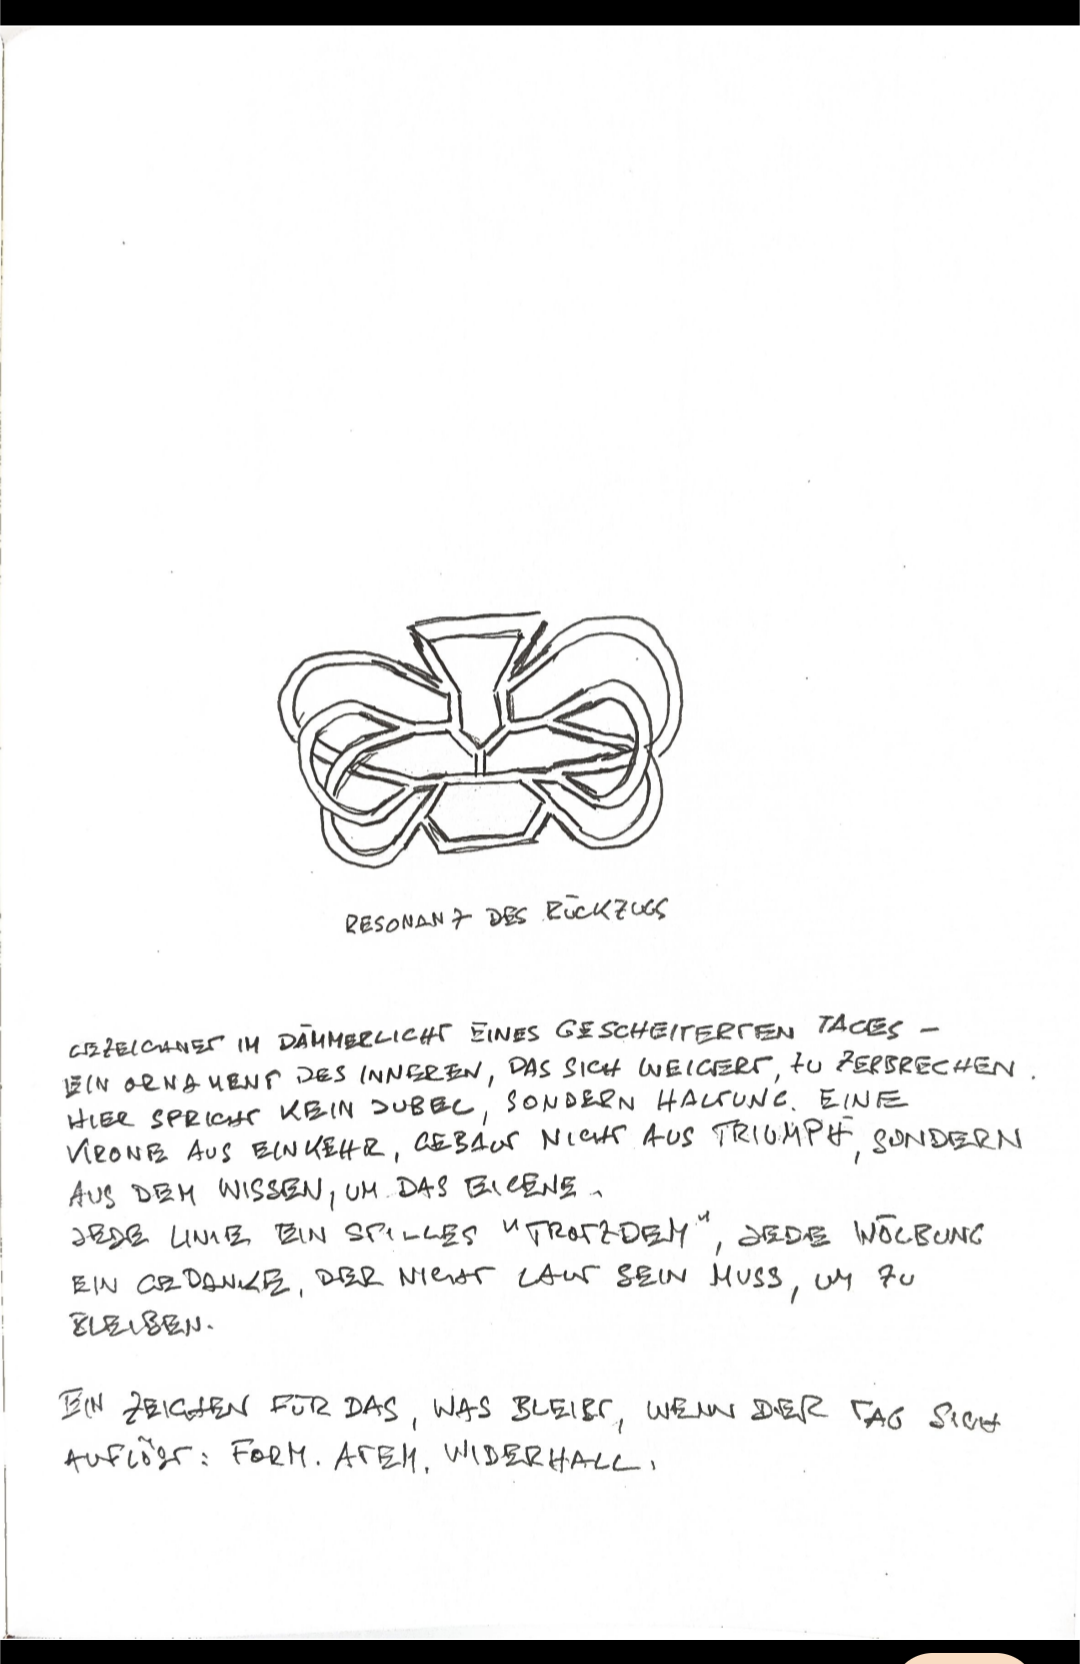 RESONANZ DES RÜCKZUGS
GEZEICHNET IM DÄMMERLICHT EINES GESCHEITERTEN TAGES –
EIN ORNAMENT DES INNEREN, DAS SICH WEIGERT, ZU ZERBRECHEN.
HIER SPRICHT KEIN JUBEL, SONDERN HALTUNG. EINE
KRONE AUS EINKEHR, GEBAUT NICHT AUS TRIUMPH, SONDERN
AUS DEM WISSEN, UM DAS EIGENE.
JEDE LINIE EIN STILLES "TROTZDEM", JEDE WÖLBUNG
EIN GEDANKE, DER NICHT LAUT SEIN MUSS, UM ZU
BLEIBEN.
EIN ZEICHEN FÜR DAS, WAS BLEIBT, WENN DER TAG SICH
AUFLÖST: FORM. ATEM. WIDERHALL.